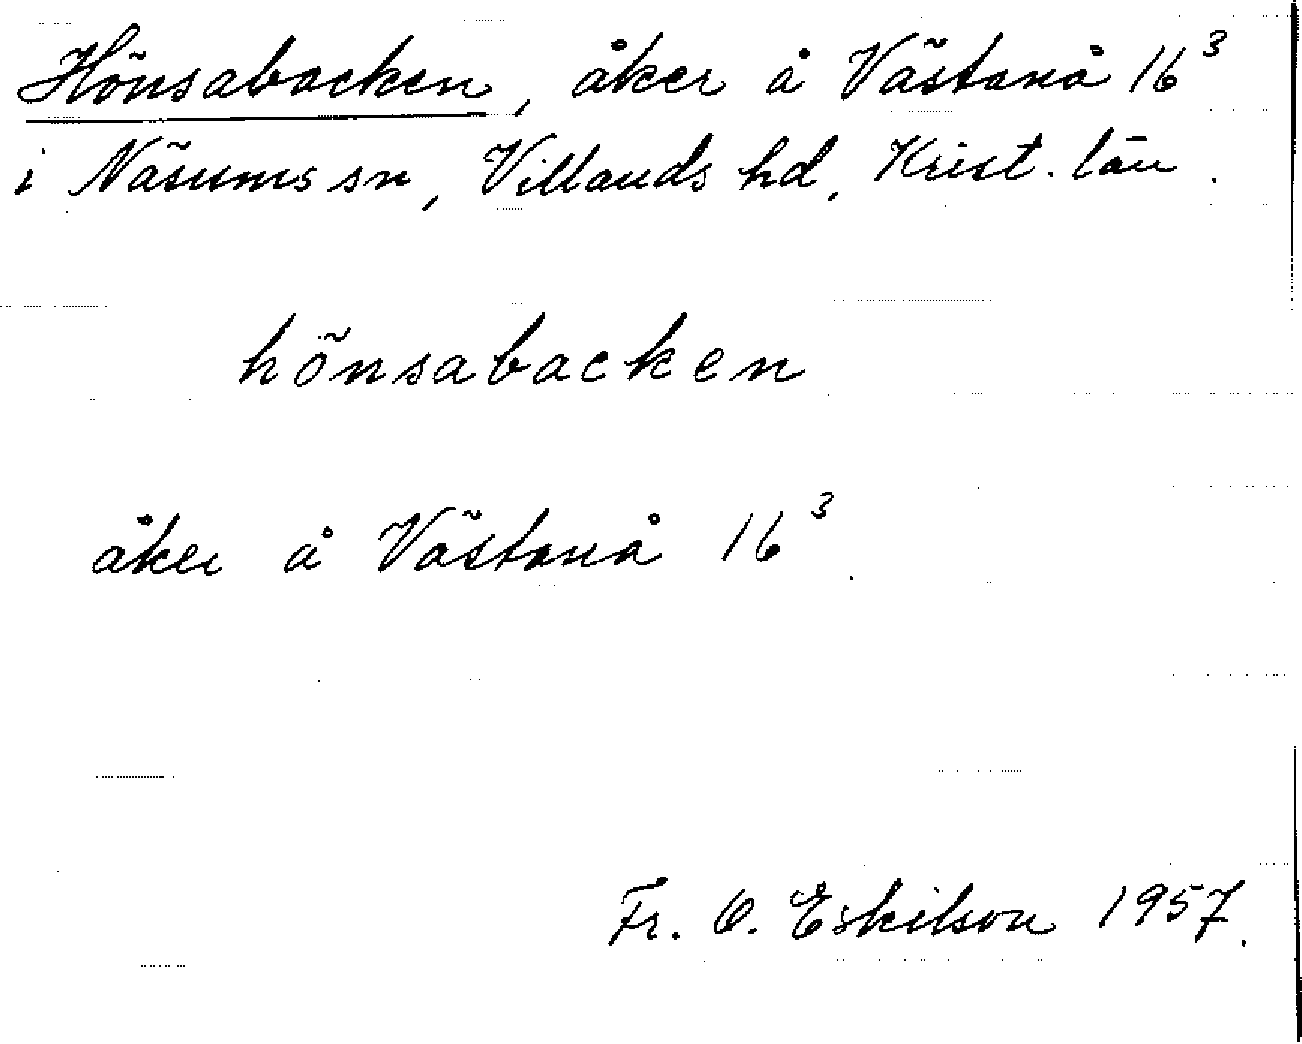 Hönsabacken, åker å Västanå 16³
i Näsums sn, Villands hd, Krist. län.
hönsabacken
åker å Västanå 16³.
Fr. O. Eskilson 1957.